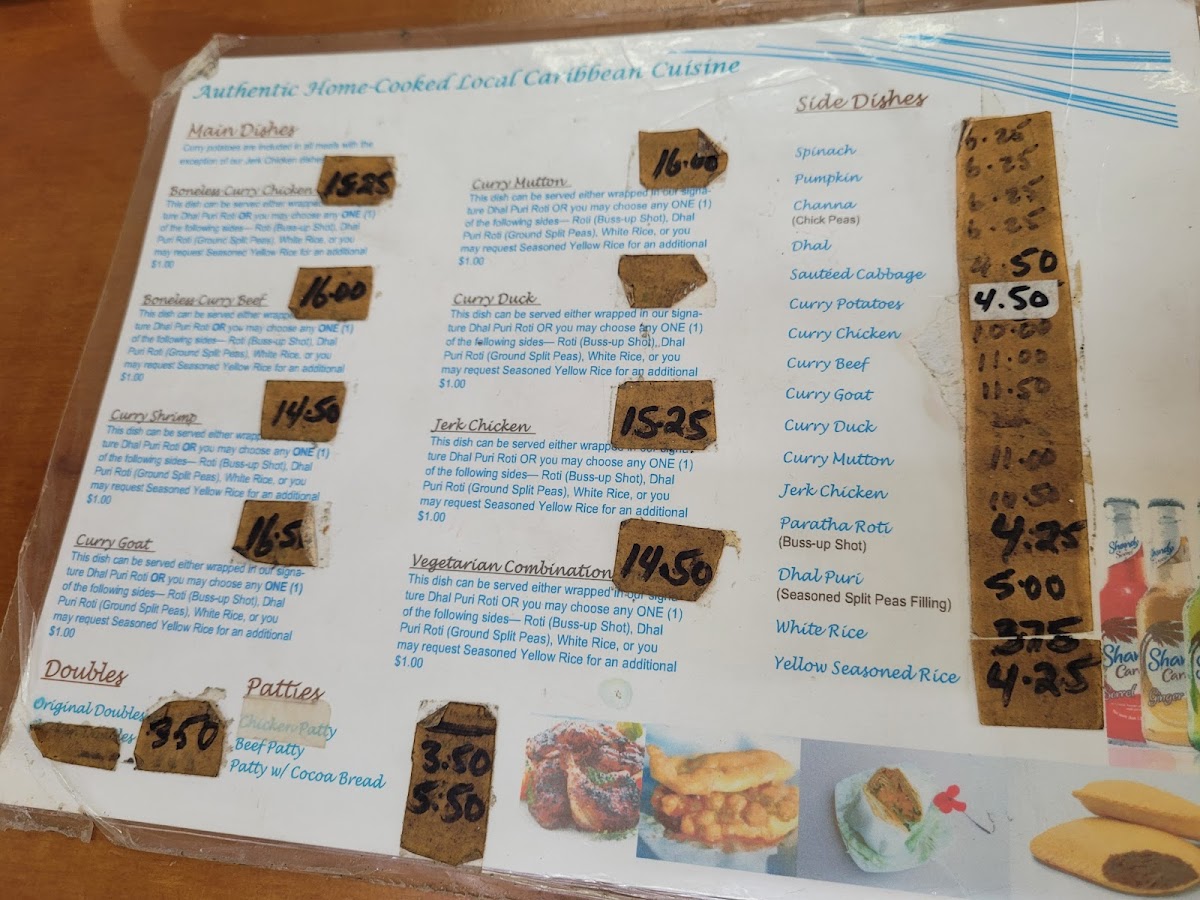 Authentic Home-Cooked Local Caribbean Cuisine
Main Dishes
Curry potatoes are included in all meals with the
exception of our Jerk Chicken dishes
Boneless Curry Chicken 15.25
This dish can be served either wrapped
ture Dhal Puri Roti OR you may choose any ONE (1)
of the following sides— Roti (Buss-up Shot), Dhal
Puri Roti (Ground Split Peas), White Rice, or you
may request Seasoned Yellow Rice for an additional
$1.00
Boneless Curry Beef 16.00
This dish can be served either
ture Dhal Puri Roti OR you may choose any ONE (1)
of the following sides— Roti (Buss-up Shot), Dhal
Puri Roti (Ground Split Peas), White Rice, or you
may request Seasoned Yellow Rice for an additional
$1.00
Curry Shrimp 14.50
This dish can be served either
ture Dhal Puri Roti OR you may choose any ONE (1)
of the following sides— Roti (Buss-up Shot), Dhal
Puri Roti (Ground Split Peas), White Rice, or you
may request Seasoned Yellow Rice for an additional
$1.00
Curry Goat 16.5
This dish can be served either wrapped in our signa-
ture Dhal Puri Roti OR you may choose any ONE (1)
of the following sides— Roti (Buss-up Shot), Dhal
Puri Roti (Ground Split Peas), White Rice, or you
may request Seasoned Yellow Rice for an additional
$1.00
Curry Mutton 16.00
This dish can be served either wrapped in our signa-
ture Dhal Puri Roti OR you may choose any ONE (1)
of the following sides— Roti (Buss-up Shot), Dhal
Puri Roti (Ground Split Peas), White Rice, or you
may request Seasoned Yellow Rice for an additional
$1.00
Curry Duck
This dish can be served either wrapped in our signa-
ture Dhal Puri Roti OR you may choose any ONE (1)
of the following sides— Roti (Buss-up Shot), Dhal
Puri Roti (Ground Split Peas), White Rice, or you
may request Seasoned Yellow Rice for an additional
$1.00
Jerk Chicken 15.25
This dish can be served either wrapped in our signa-
ture Dhal Puri Roti OR you may choose any ONE (1)
of the following sides— Roti (Buss-up Shot), Dhal
Puri Roti (Ground Split Peas), White Rice, or you
may request Seasoned Yellow Rice for an additional
$1.00
Vegetarian Combination 14.50
This dish can be served either wrapped in our signa-
ture Dhal Puri Roti OR you may choose any ONE (1)
of the following sides— Roti (Buss-up Shot), Dhal
Puri Roti (Ground Split Peas), White Rice, or you
may request Seasoned Yellow Rice for an additional
$1.00
Doubles
Original Doubles 3.50
Patties
Chicken Patty
Beef Patty 3.50
Patty w/ Cocoa Bread 5.50
Side Dishes
Spinach 6.25
Pumpkin 6.25
Channa 6.25
(Chick Peas)
Dhal 6.25
Sautéed Cabbage 4.50
Curry Potatoes 4.50
Curry Chicken 10.00
Curry Beef 11.00
Curry Goat 11.50
Curry Duck
Curry Mutton 11.00
Jerk Chicken 10.50
Paratha Roti 4.25
(Buss-up Shot)
Dhal Puri 5.00
(Seasoned Split Peas Filling)
White Rice 3.75
Yellow Seasoned Rice 4.25
Shandy
Shandy
Shan
Car
Sorrel
Shan
Car
Ginger